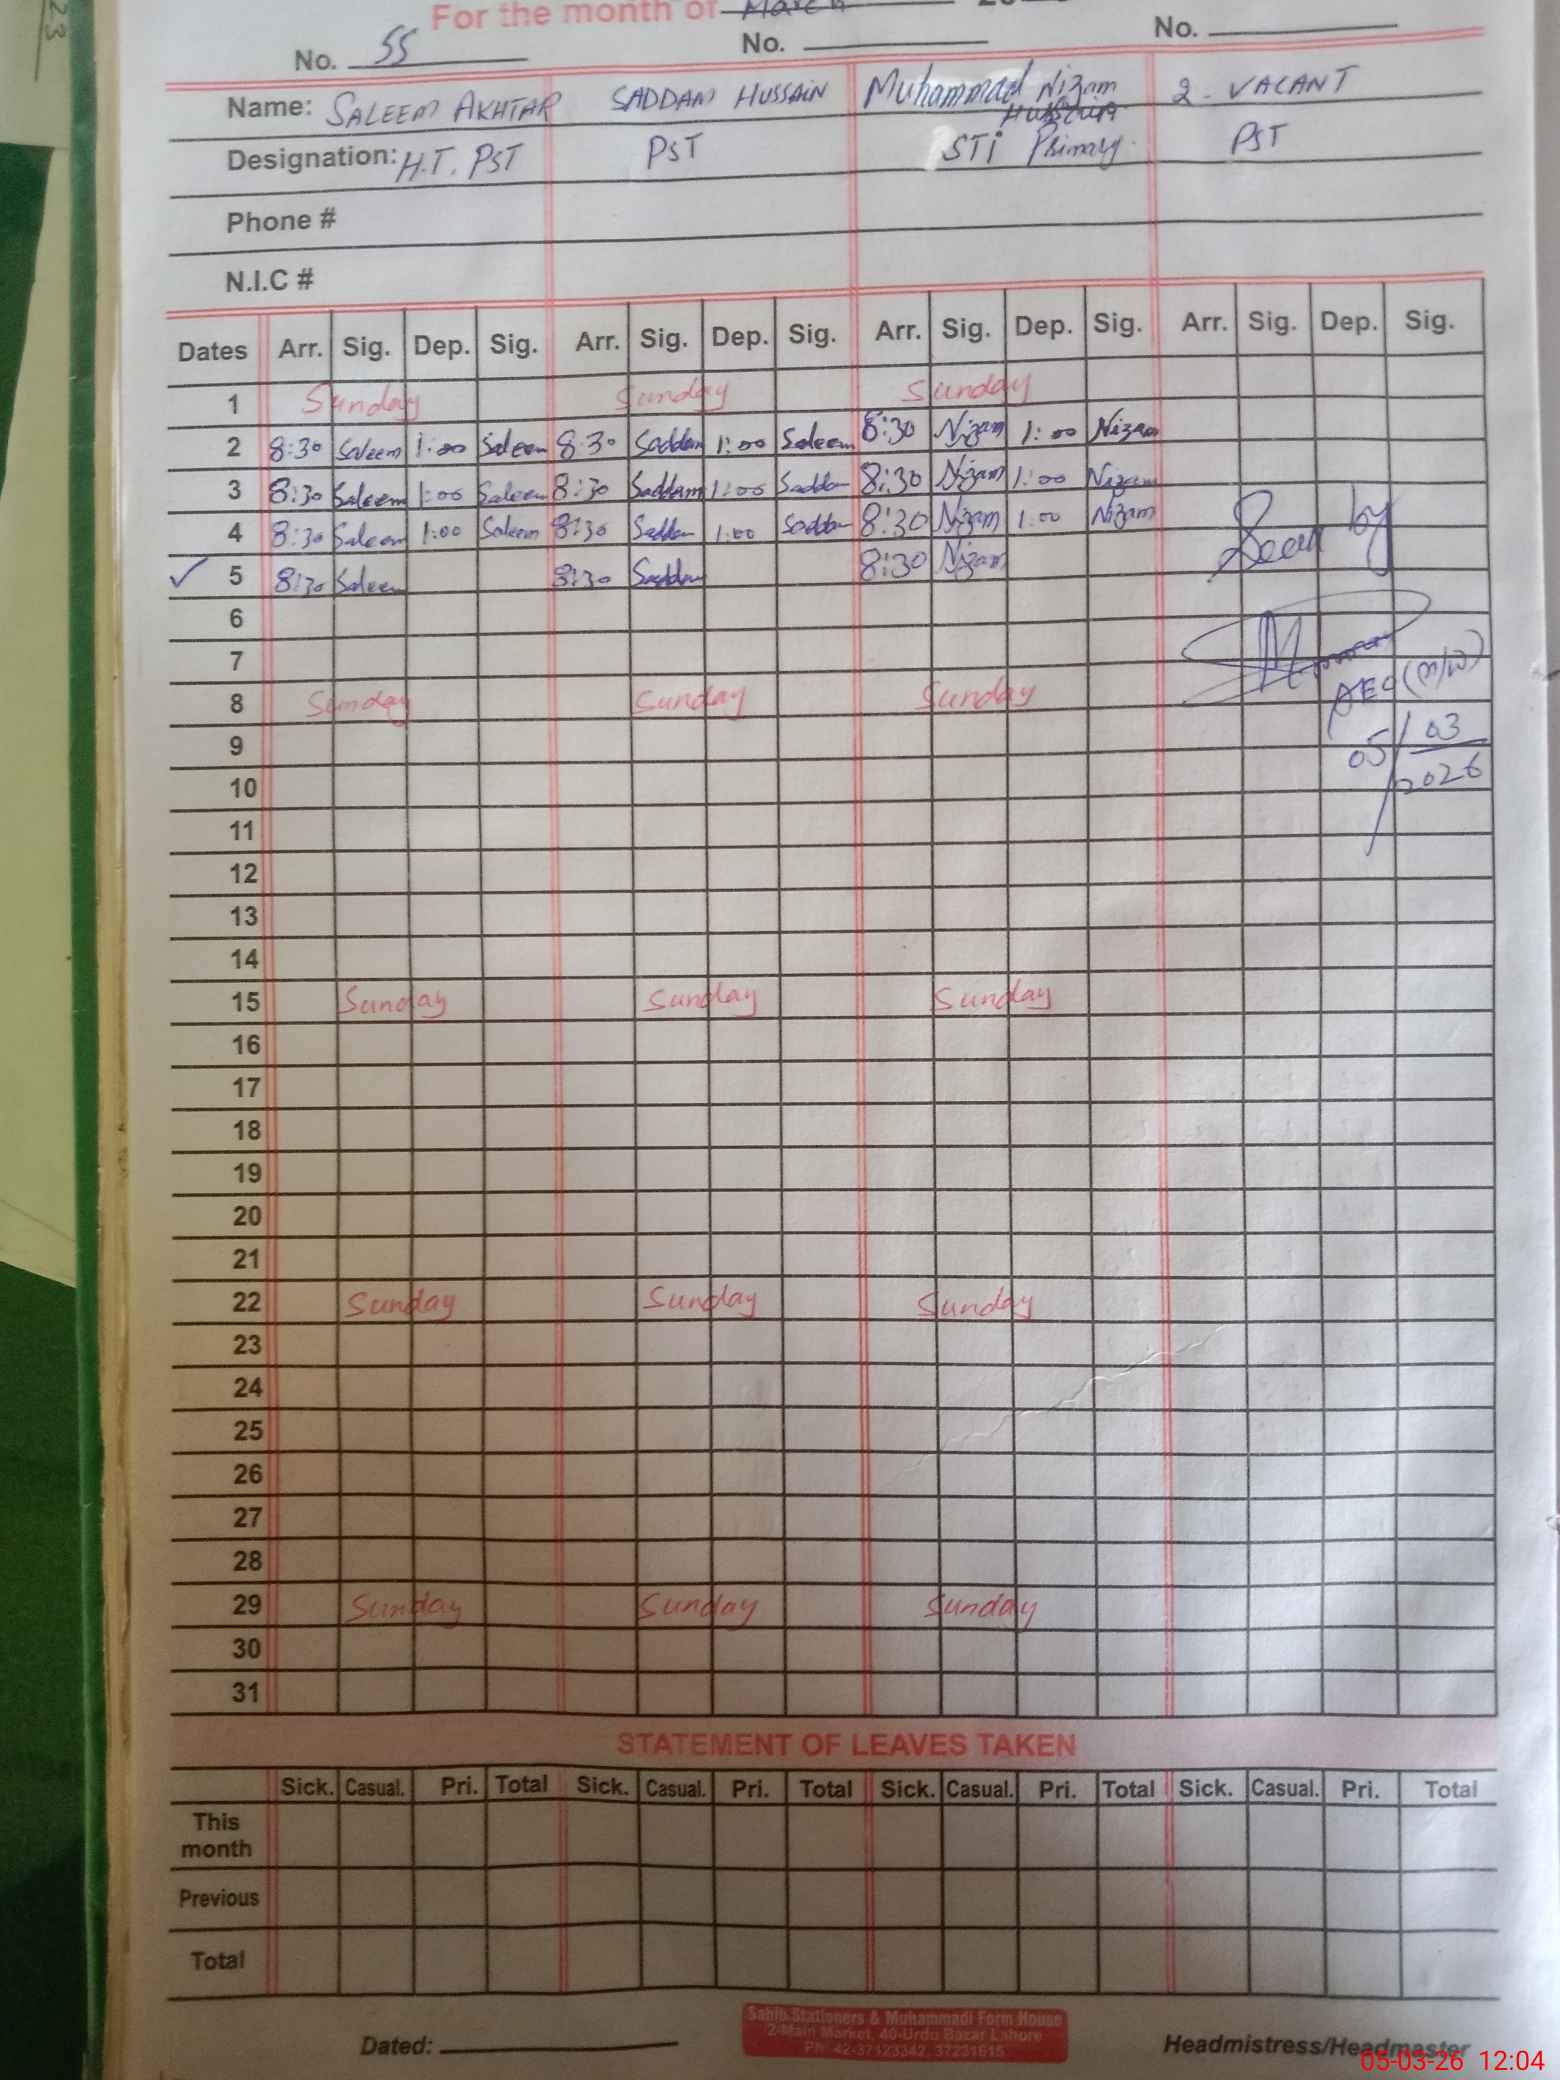 23
For the month of March
No. 55 No. No.
Name: SALEEM AKHTAR SADDAM HUSSAIN Muhammad Nizam 2 - VACANT
Designation: H.T. PST PST STi Primary. PST
Phone #
N.I.C #
Dates Arr. Sig. Dep. Sig. Arr. Sig. Dep. Sig. Arr. Sig. Dep. Sig. Arr. Sig. Dep. Sig.
1 Sunday Sunday Sunday
2 8:30 Saleem 1:00 Saleem 8:30 Saddam 1:00 Saleem 8:30 Nizam 1:00 Nizam
3 8:30 Saleem 1:00 Saleem 8:30 Saddam 1:00 Saddam 8:30 Nizam 1:00 Nizam
4 8:30 Saleem 1:00 Saleem 8:30 Saddam 1:00 Saddam 8:30 Nizam 1:00 Nizam
Seen by
5 8:30 Saleem 8:30 Saddam 8:30 Nizam
6
7
AEO (M/W)
8 Sunday Sunday Sunday
9
05/03/2026
10
11
12
13
14
15 Sunday Sunday Sunday
16
17
18
19
20
21
22 Sunday Sunday Sunday
23
24
25
26
27
28
29 Sunday Sunday Sunday
30
31
STATEMENT OF LEAVES TAKEN
Sick. Casual. Pri. Total Sick. Casual. Pri. Total Sick. Casual. Pri. Total Sick. Casual. Pri. Total
This month
Previous
Total
Sahib Stationers & Muhammadi Form House
2-Main Market, 40-Urdu Bazar Lahore
Ph: 42-37123342, 37231615
Dated: Headmistress/Headmaster
05-03-26 12:04